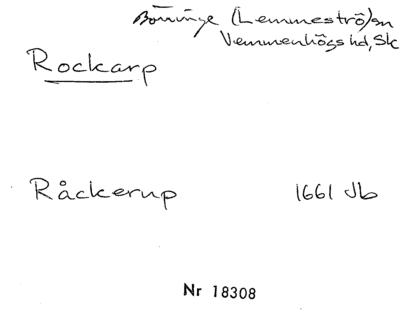 Börringe (Lemmeströ) sn
Vemmenhögs hd, Sk
Rockarp
Råckerup 1661 Jb
Nr 18308